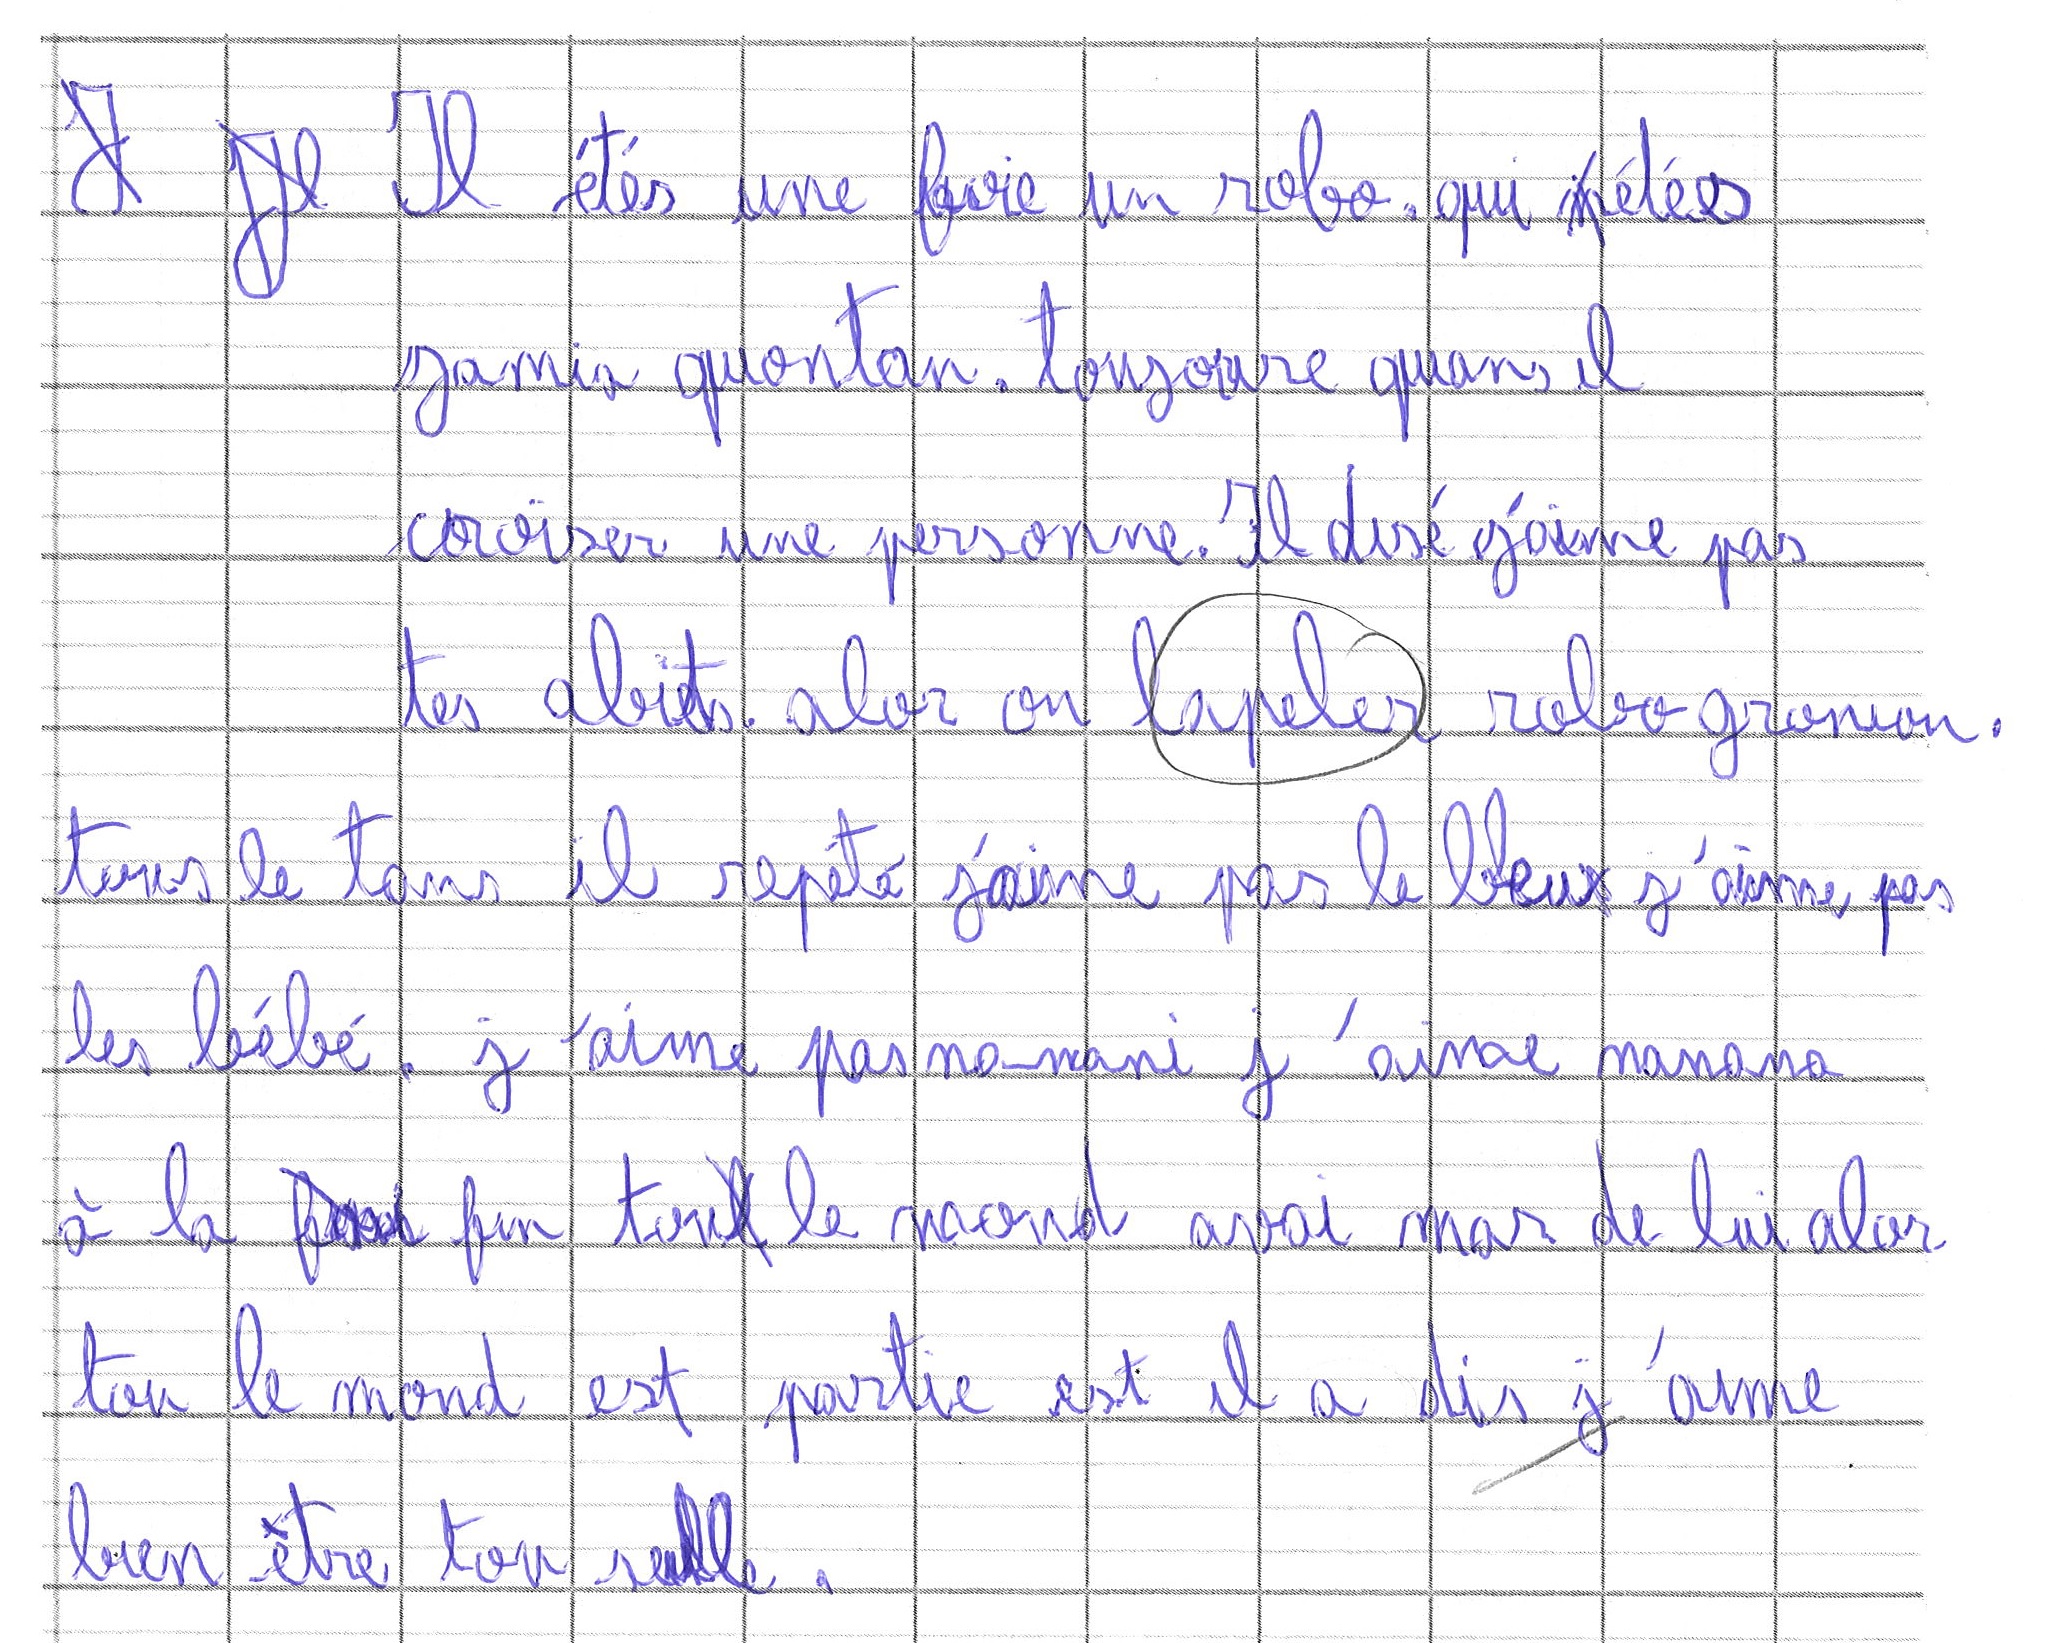 Il étés une foie un robo. qui n'étées
jamis quontan. toujoure quans il
croiser une personne. Il disé j'aime pas
tes abits. alor on lapeler robo gronion.
tous le tans il repété j'aime pas le bleux j'aime pas
les bébé. j'aime pas na-nani j'aime nanana
à la fin tou le mond avai mar de lui alor
tou le mond est partie est il a dis j'aime
bien être tou seulle.